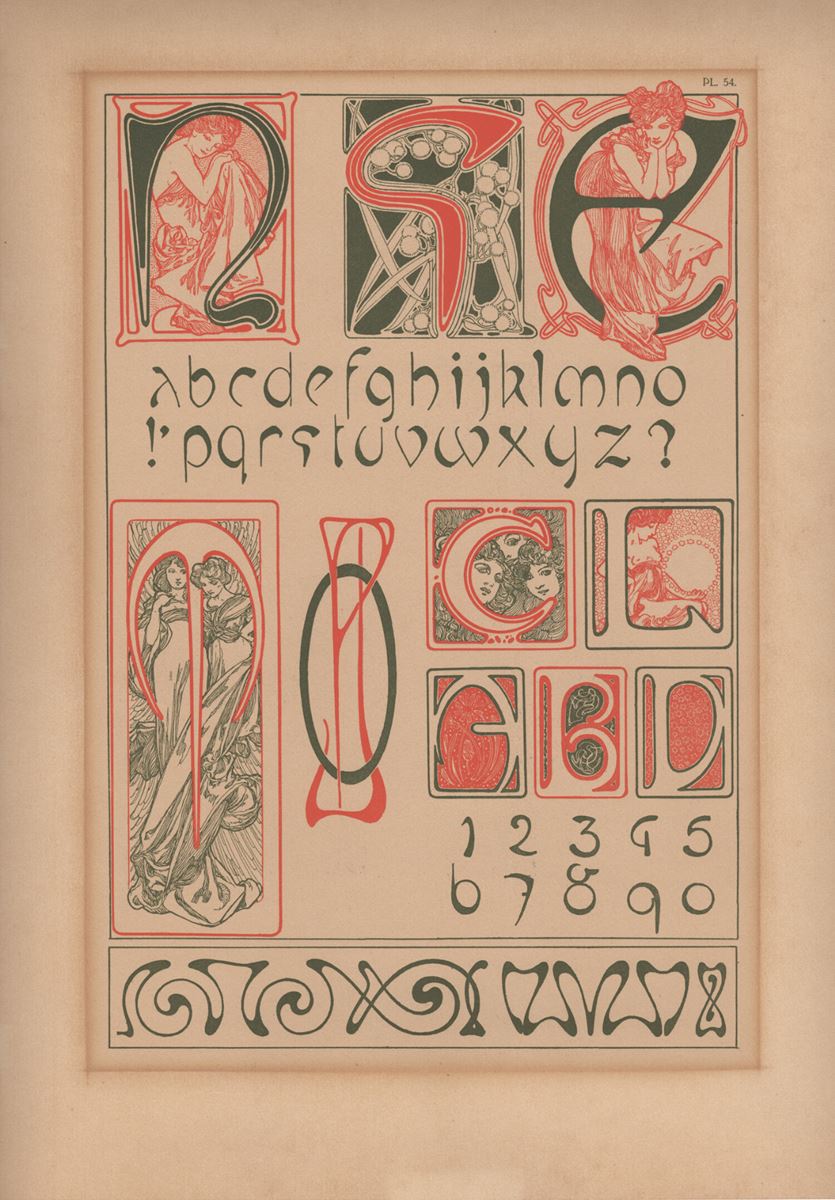 PL. 54.
N S E
abcdefghijklmno
!'pqrstuvwxyz?
M O C L
A B D
1 2 3 4 5
6 7 8 9 0